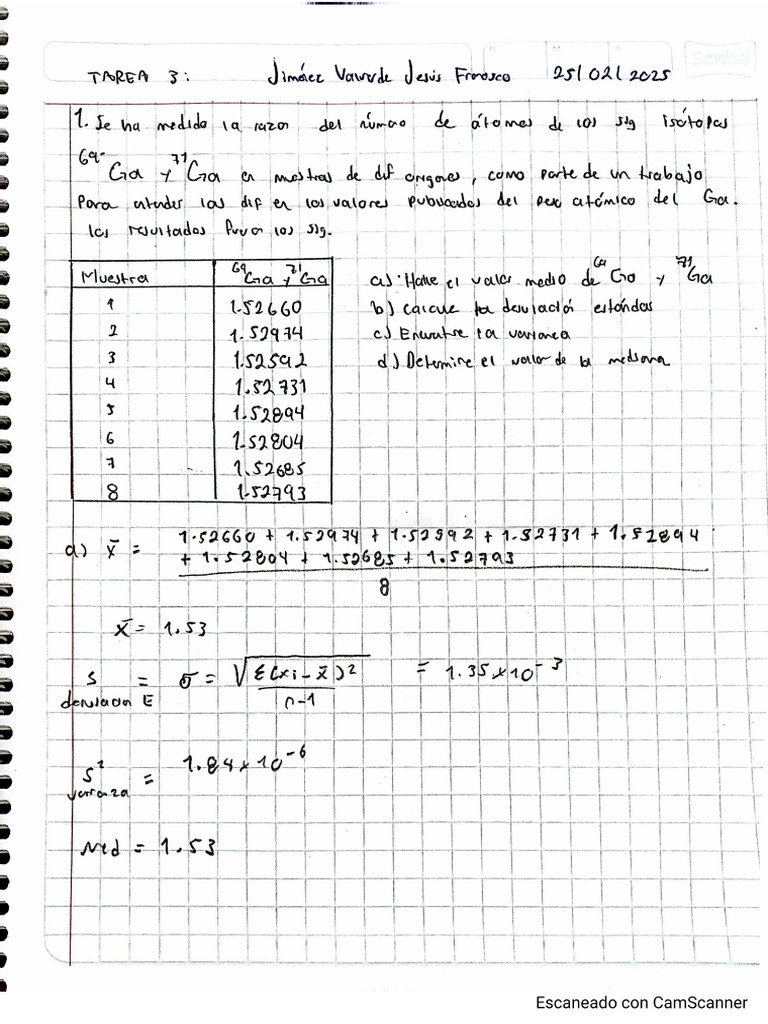 Scribe
TAREA 3: Jiménez Valverde Jesús Francisco 25/02/2025
1. Se ha medido la razon del número de átomos de los sig isótopos
69 Ga y 71 Ga en muestras de dif origenes, como parte de un trabajo
para entender las dif en los valores publicados del peso atómico del Ga.
los resultados fueron los sig.
Muestra 69 Ga y 71 Ga
1 1.52660
2 1.52974
3 1.52592
4 1.52731
5 1.52894
6 1.52804
7 1.52685
8 1.52793
a) Halle el valor medio de 69 Ga y 71 Ga
b) calcule la desviación estándar
c) Encuentre la varianza
d) Determine el valor de la mediana
a) x̄ = 1.52660 + 1.52974 + 1.52592 + 1.52731 + 1.52894
+ 1.52804 + 1.52685 + 1.52793
8
x̄ = 1.53
s = σ = √Σ(xi - x̄)² = 1.35 x 10⁻³
desviacion E n-1
s² = 1.84 x 10⁻⁶
varianza
Med = 1.53
Escaneado con CamScanner